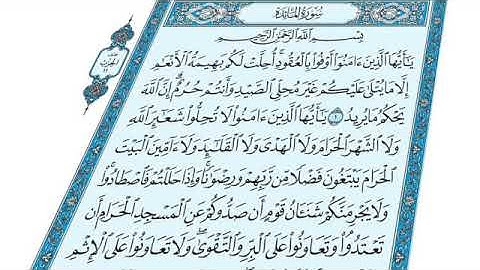 سُورَةُ المَائِدَةِ
بِسْمِ اللَّهِ الرَّحْمَٰنِ الرَّحِيمِ
يَـٰٓأَيُّهَا الَّذِينَ ءَامَنُوٓا أَوْفُوا بِالْعُقُودِ أُحِلَّتْ لَكُم بَهِيمَةُ الْأَنْعَـٰمِ
إِلَّا مَا يُتْلَىٰ عَلَيْكُمْ غَيْرَ مُحِلِّى الصَّيْدِ وَأَنتُمْ حُرُمٌ إِنَّ اللَّهَ
يَحْكُمُ مَا يُرِيدُ ١ يَـٰٓأَيُّهَا الَّذِينَ ءَامَنُوا لَا تُحِلُّوا شَعَـٰٓئِرَ اللَّهِ
وَلَا الشَّهْرَ الْحَرَامَ وَلَا الْهَدْىَ وَلَا الْقَلَـٰٓئِدَ وَلَآ ءَآمِّينَ الْبَيْتَ
الْحَرَامَ يَبْتَغُونَ فَضْلًا مِّن رَّبِّهِمْ وَرِضْوَٰنًا وَإِذَا حَلَلْتُمْ فَاصْطَادُوا
وَلَا يَجْرِمَنَّكُمْ شَنَـَٔانُ قَوْمٍ أَن صَدُّوكُمْ عَنِ الْمَسْجِدِ الْحَرَامِ أَن
تَعْتَدُوا وَتَعَاوَنُوا عَلَى الْبِرِّ وَالتَّقْوَىٰ وَلَا تَعَاوَنُوا عَلَى الْإِثْمِ